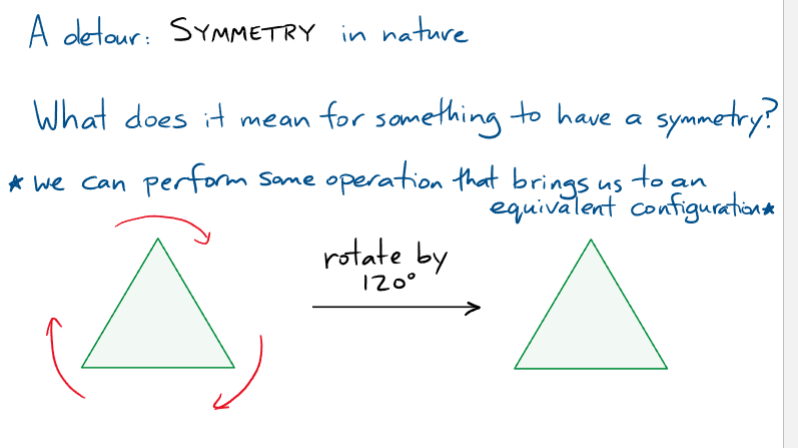 A detour: SYMMETRY in nature
What does it mean for something to have a symmetry?
* we can perform some operation that brings us to an
equivalent configuration*
rotate by
120°